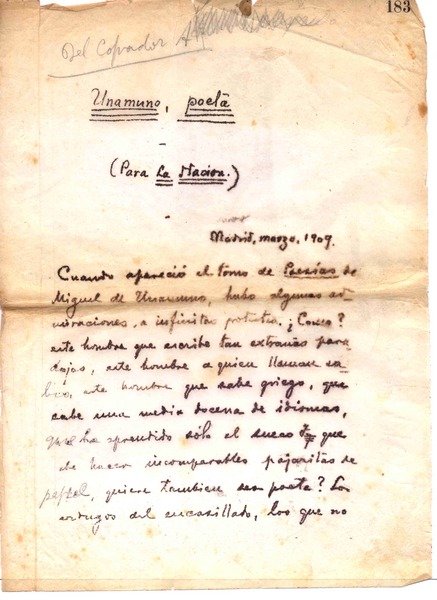 183
Del Copiador
Unamuno, poeta
(Para La Nacion.)
Madrid, marzo, 1909.
Cuando apareció el tomo de Poesías de
Miguel de Unamuno, hubo algunas ad-
miraciones, e infinitas protestas. ¿Como?
este hombre que escribe tan extrañas para
dojas, este hombre a quien llaman sa-
bio, este hombre que sabe griego, que
sabe una media docena de idiomas,
que ha aprendido sólo el sueco y que
sabe hacer incomparables pajaritas de
papel, quiere tambien ser poeta? Los
verdugos del encasillado, los que no